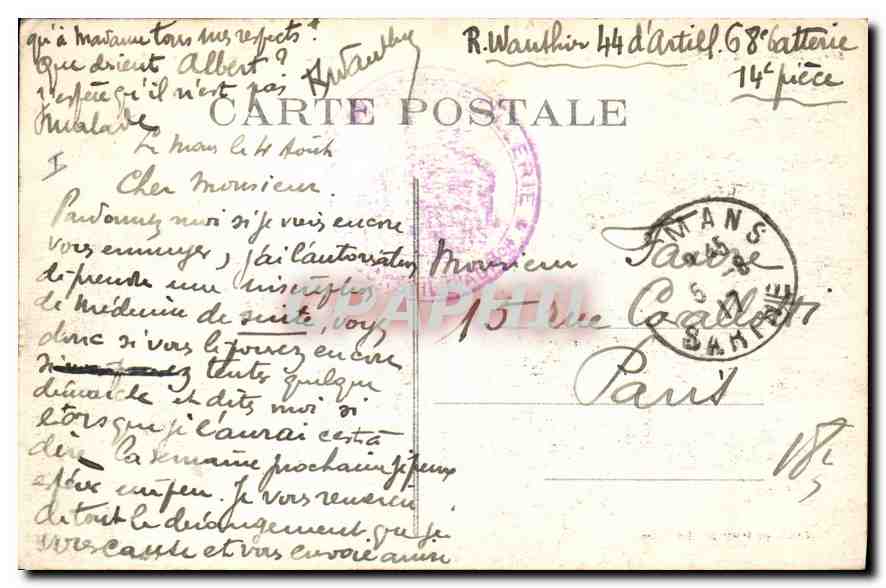 R. Wauthier 44 d'Artill. 68e batterie
14e pièce
CARTE POSTALE
Le Mans le 4 Août
Cher Monsieur.
Pardonnez moi si je viens encore
vous ennuyer, j'ai l'autorisation
de prendre une inscription
de Médecine de suite, voyez
donc si vous le pouvez encore
tenter quelque
démarche et dites moi si
lorsque je l'aurai c'est à
dire la semaine prochaine je peux
espérer un peu. Je vous remercie
de tout le dérangement que je
vous cause et vous envoie ainsi
qu'à Madame tous mes respects.
Que devient Albert?
j'espère qu'il n'est pas
malade
RWauthier
I
Monsieur Favre
15 rue Cavallotti
Paris
MANS
45
5 -8
17
SARTHE
ERIE
CPAPHIL